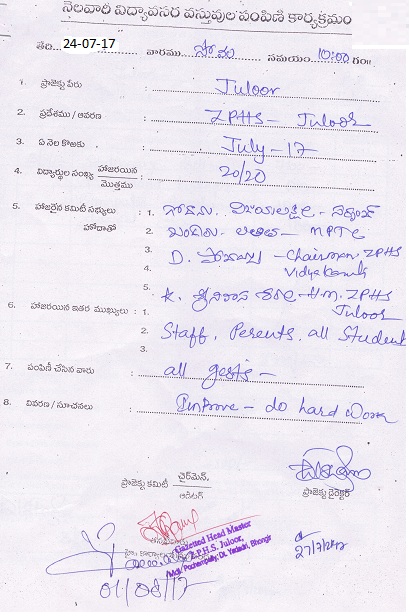 నెలవారీ విద్యావసర వస్తువుల పంపిణి కార్యక్రమం
తేది: 24-07-17 వారము సోమ సమయం 10:00 గం॥
1. ప్రాజెక్టు పేరు : Juloor
2. ప్రదేశము / ఆవరణ : ZPHS - Juloor
3. ఏ నెల కొఱకు : July - 17
4. విద్యార్థుల సంఖ్య హాజరయిన / మొత్తము : 20/20
5. హాజరైన కమిటీ సభ్యులు హోదాతో : 1. విజయలక్ష్మి - సర్పంచ్
2. లలిత - MPTC
3. D. - Chairman, ZPHS
4. Vidya
5. K. శ్రీనివాస H.M. ZPHS
6. హాజరయిన ఇతర ముఖ్యులు : 1. Juloor
2. Staff, Perents, all Student
3.
7. పంపిణీ చేసిన వారు : all gests -
8. వివరణ / సూచనలు : Improve - do hard work
ప్రాజెక్టు కమిటీ ఛైర్మెన్, ఆడిటర్
ప్రాజెక్టు డైరెక్టర్
Gazetted Head Master
Z.P.H.S. Juloor,
Mdl: Pochampally, Dt. Yadadri, Bhongir
01/08/17